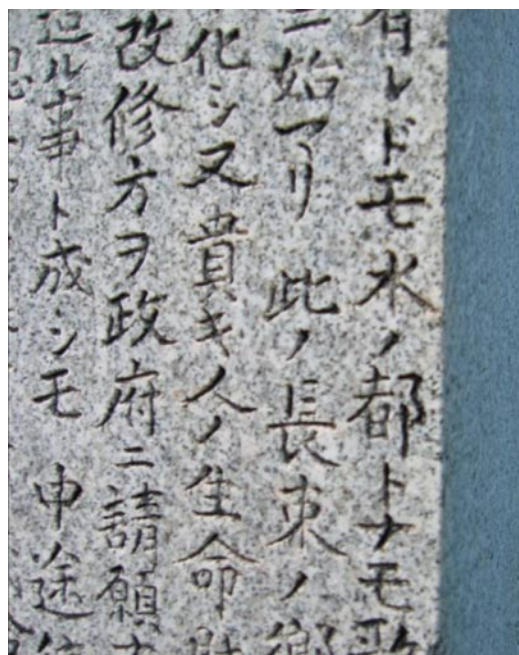 有レドモ水ノ都トナモ歌
ニ始マリ此ノ長束ノ郷
化シ又貴キ人ノ生命財
改修方ヲ政府ニ請願
造ル事ト成シモ申途